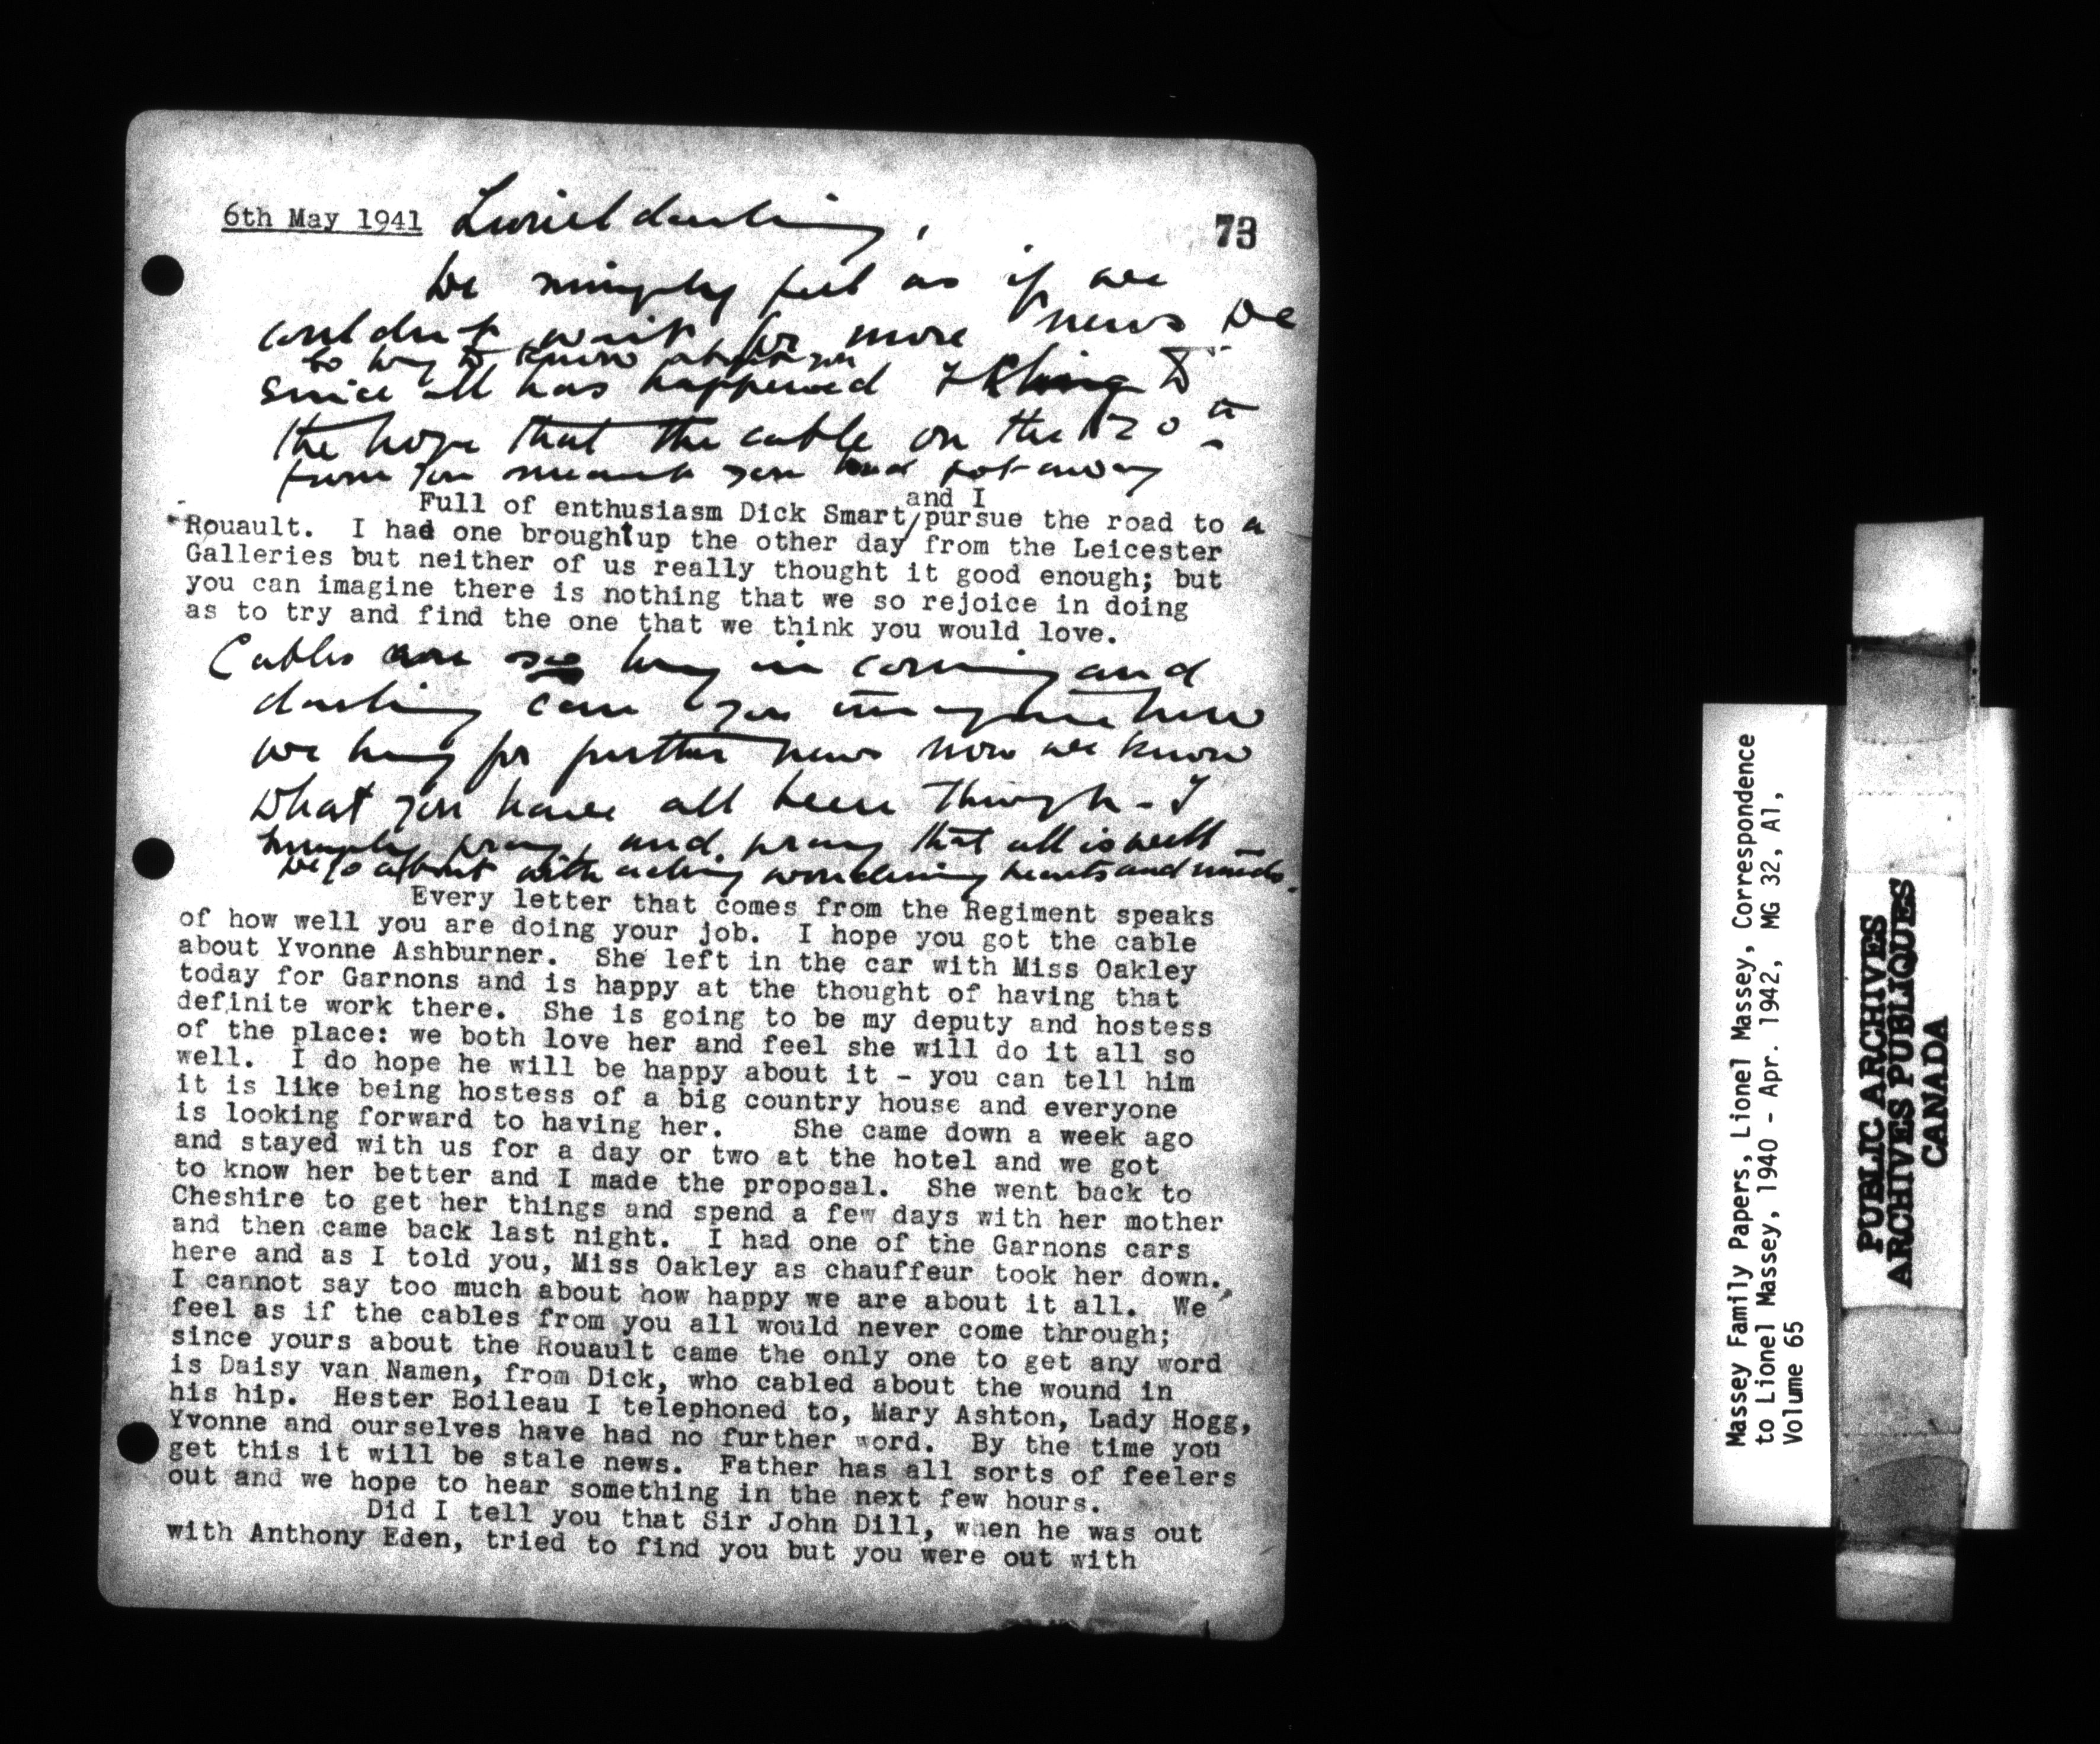 6th May 1941 Lionel darling,
73
We simply feel as if we
couldn't wait for more news we
so long to know about you
since all has happened I cling to
the hope that the cable on the 20th
from you meant you had got away
and I
Full of enthusiasm Dick Smart/pursue the road to a
Rouault. I had one brought up the other day from the Leicester
Galleries but neither of us really thought it good enough; but
you can imagine there is nothing that we so rejoice in doing
as to try and find the one that we think you would love.
Cables are so long in coming and
darling can you imagine how
we long for further news now we know
what you have all been through - I
simply pray and pray that all is well -
We go about with aching wondering hearts and minds.
Every letter that comes from the Regiment speaks
of how well you are doing your job. I hope you got the cable
about Yvonne Ashburner. She left in the car with Miss Oakley
today for Garnons and is happy at the thought of having that
definite work there. She is going to be my deputy and hostess
of the place: we both love her and feel she will do it all so
well. I do hope he will be happy about it - you can tell him
it is like being hostess of a big country house and everyone
is looking forward to having her. She came down a week ago
and stayed with us for a day or two at the hotel and we got
to know her better and I made the proposal. She went back to
Cheshire to get her things and spend a few days with her mother
and then came back last night. I had one of the Garnons cars
here and as I told you, Miss Oakley as chauffeur took her down.
I cannot say too much about how happy we are about it all. We
feel as if the cables from you all would never come through;
since yours about the Rouault came the only one to get any word
is Daisy van Namen, from Dick, who cabled about the wound in
his hip. Hester Boileau I telephoned to, Mary Ashton, Lady Hogg,
Yvonne and ourselves have had no further word. By the time you
get this it will be stale news. Father has all sorts of feelers
out and we hope to hear something in the next few hours.
Did I tell you that Sir John Dill, when he was out
with Anthony Eden, tried to find you but you were out with
Massey Family Papers, Lionel Massey, Correspondence
to Lionel Massey, 1940 - Apr. 1942, MG 32, A1,
Volume 65
PUBLIC ARCHIVES
ARCHIVES PUBLIQUES
CANADA